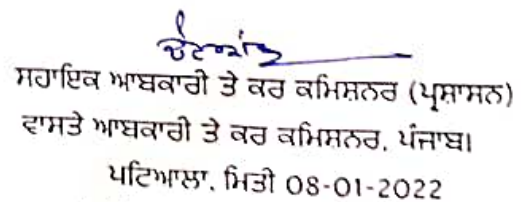 ਸਹਾਇਕ ਆਬਕਾਰੀ ਤੇ ਕਰ ਕਮਿਸ਼ਨਰ (ਪ੍ਰਸ਼ਾਸਨ)
ਵਾਸਤੇ ਆਬਕਾਰੀ ਤੇ ਕਰ ਕਮਿਸ਼ਨਰ, ਪੰਜਾਬ।
ਪਟਿਆਲਾ, ਮਿਤੀ 08-01-2022